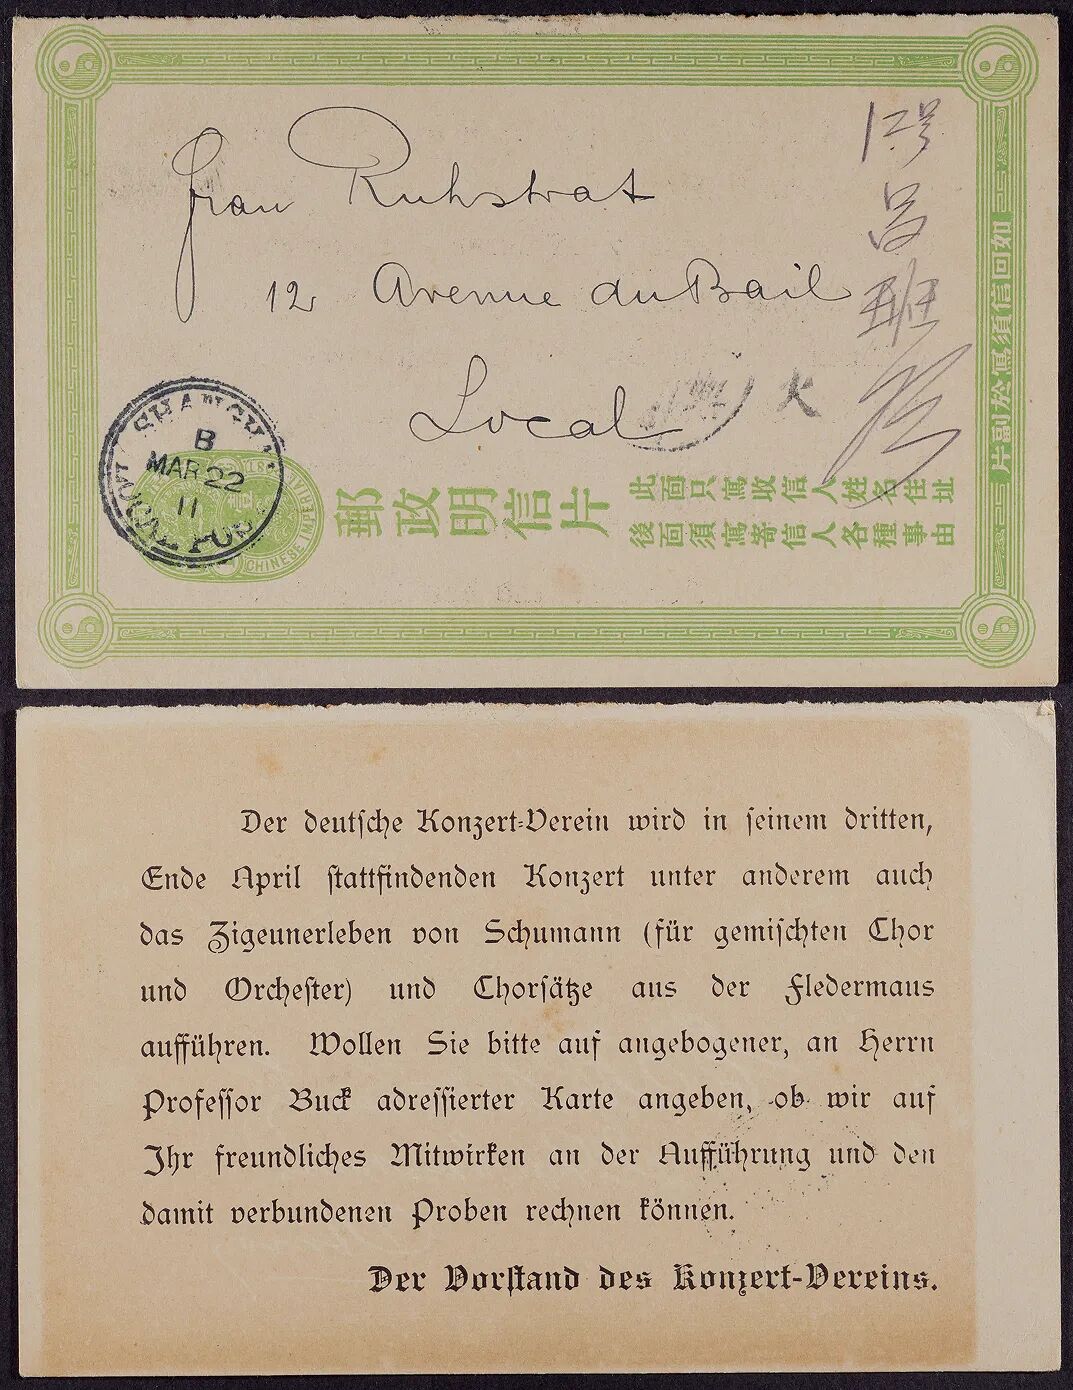 Frau Ruhstrat
12 Avenue du Bail
Local
12号
呂
班
路
火
SHANGHAI
B
MAR 22
11
LOCAL POST
CHINESE IMPERIAL POST
郵政明信片
此面只寫收信人姓名住址
後面須寫寄信人各種事由
如回信須寫於副片
Der deutsche Konzert-Verein wird in seinem dritten,
Ende April stattfindenden Konzert unter anderem auch
das Zigeunerleben von Schumann (für gemischten Chor
und Orchester) und Chorsätze aus der Fledermaus
aufführen. Wollen Sie bitte auf angebogener, an Herrn
Professor Buck adressierter Karte angeben, ob wir auf
Ihr freundliches Mitwirken an der Aufführung und den
damit verbundenen Proben rechnen können.
Der Vorstand des Konzert-Vereins.